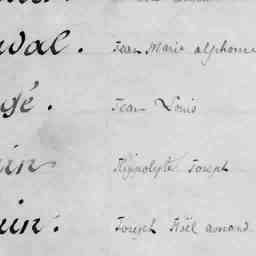 val. Jean Marie alphonse
gé. Jean Louis
in Hippolyte Joseph
uin. Joseph Noël armand